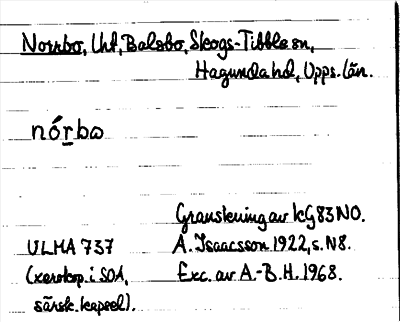 Norrbo, Uht, Balsbo, Skogs-Tibble sn,
Hagunda hd, Upps. län.
nórbω
Granskning av KG83NO.
ULMA 737 A. Isaacsson 1922, s. N8.
(xerokop. i SOA, Exc. av A.-B. H. 1968.
särsk. kapsel).